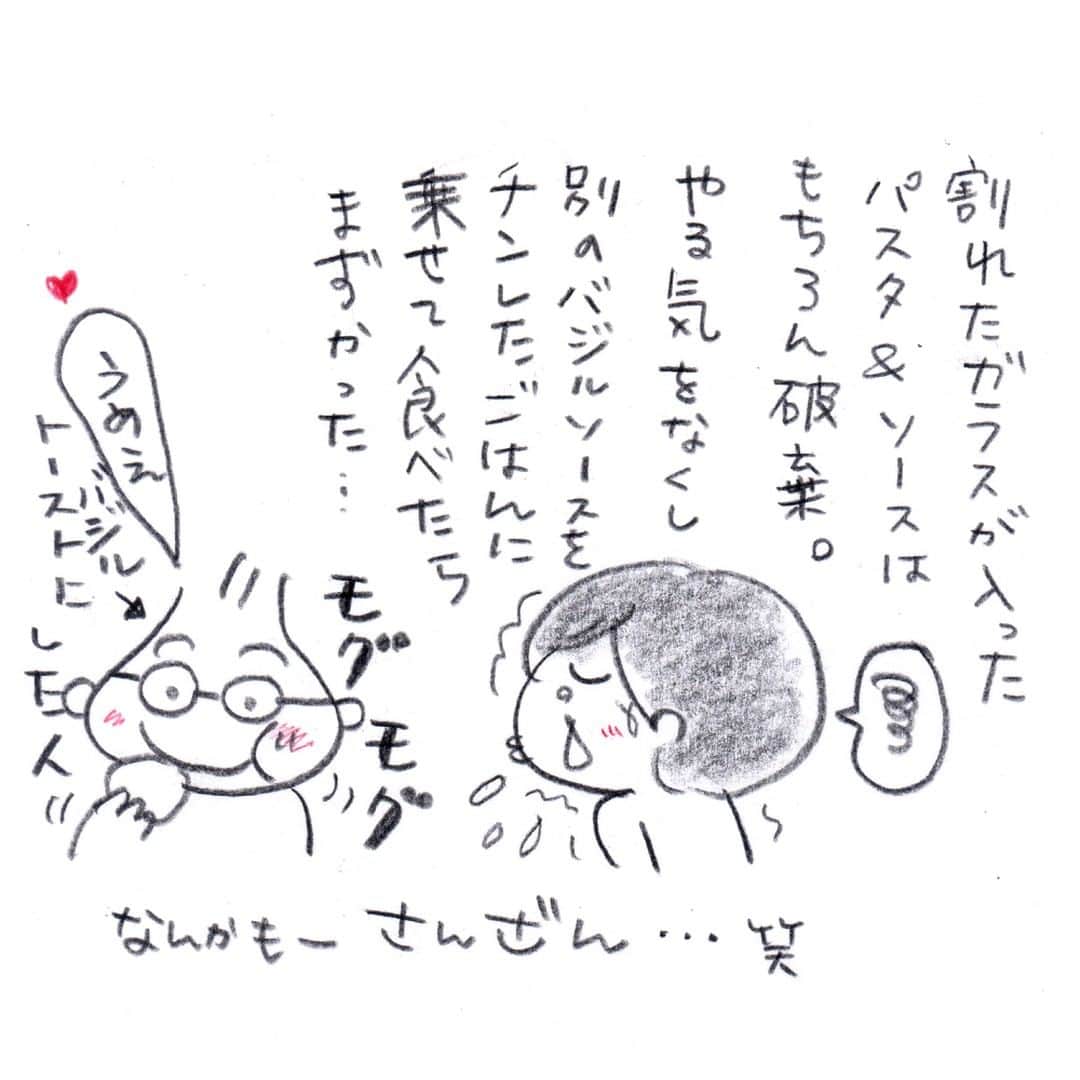 割れたガラスが入った
パスタ&ソースは
もちろん破棄。
やる気をなくし
別のバジルソースを
チンしたごはんに
乗せて食べたら
まずかった…
モグ
モグ
うめぇ
バジル
トーストに
した人
なんかもーさんざん…笑